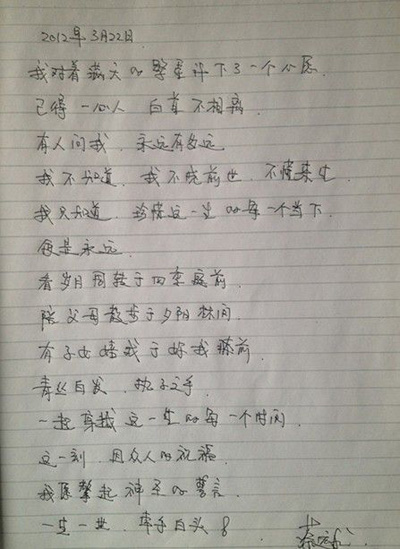 2012年3月22日.
我对着满天的繁星许下了一个心愿.
已得一心人 白首不相离.
有人问我. 永远有多远
我不知道. 我不忆前世. 不憧来生.
我只知道. 珍惜这一生的每一个当下.
便是永远.
看岁月周转于四季庭前.
陪父母散步于夕阳林间.
有子女嬉戏于妳我膝前.
青丝白发. 执子之手.
一起穿越这一生的每一个时间.
这一刻. 因众人的祝福.
我愿擎起神圣的誓言.
一生一世. 牵手白头